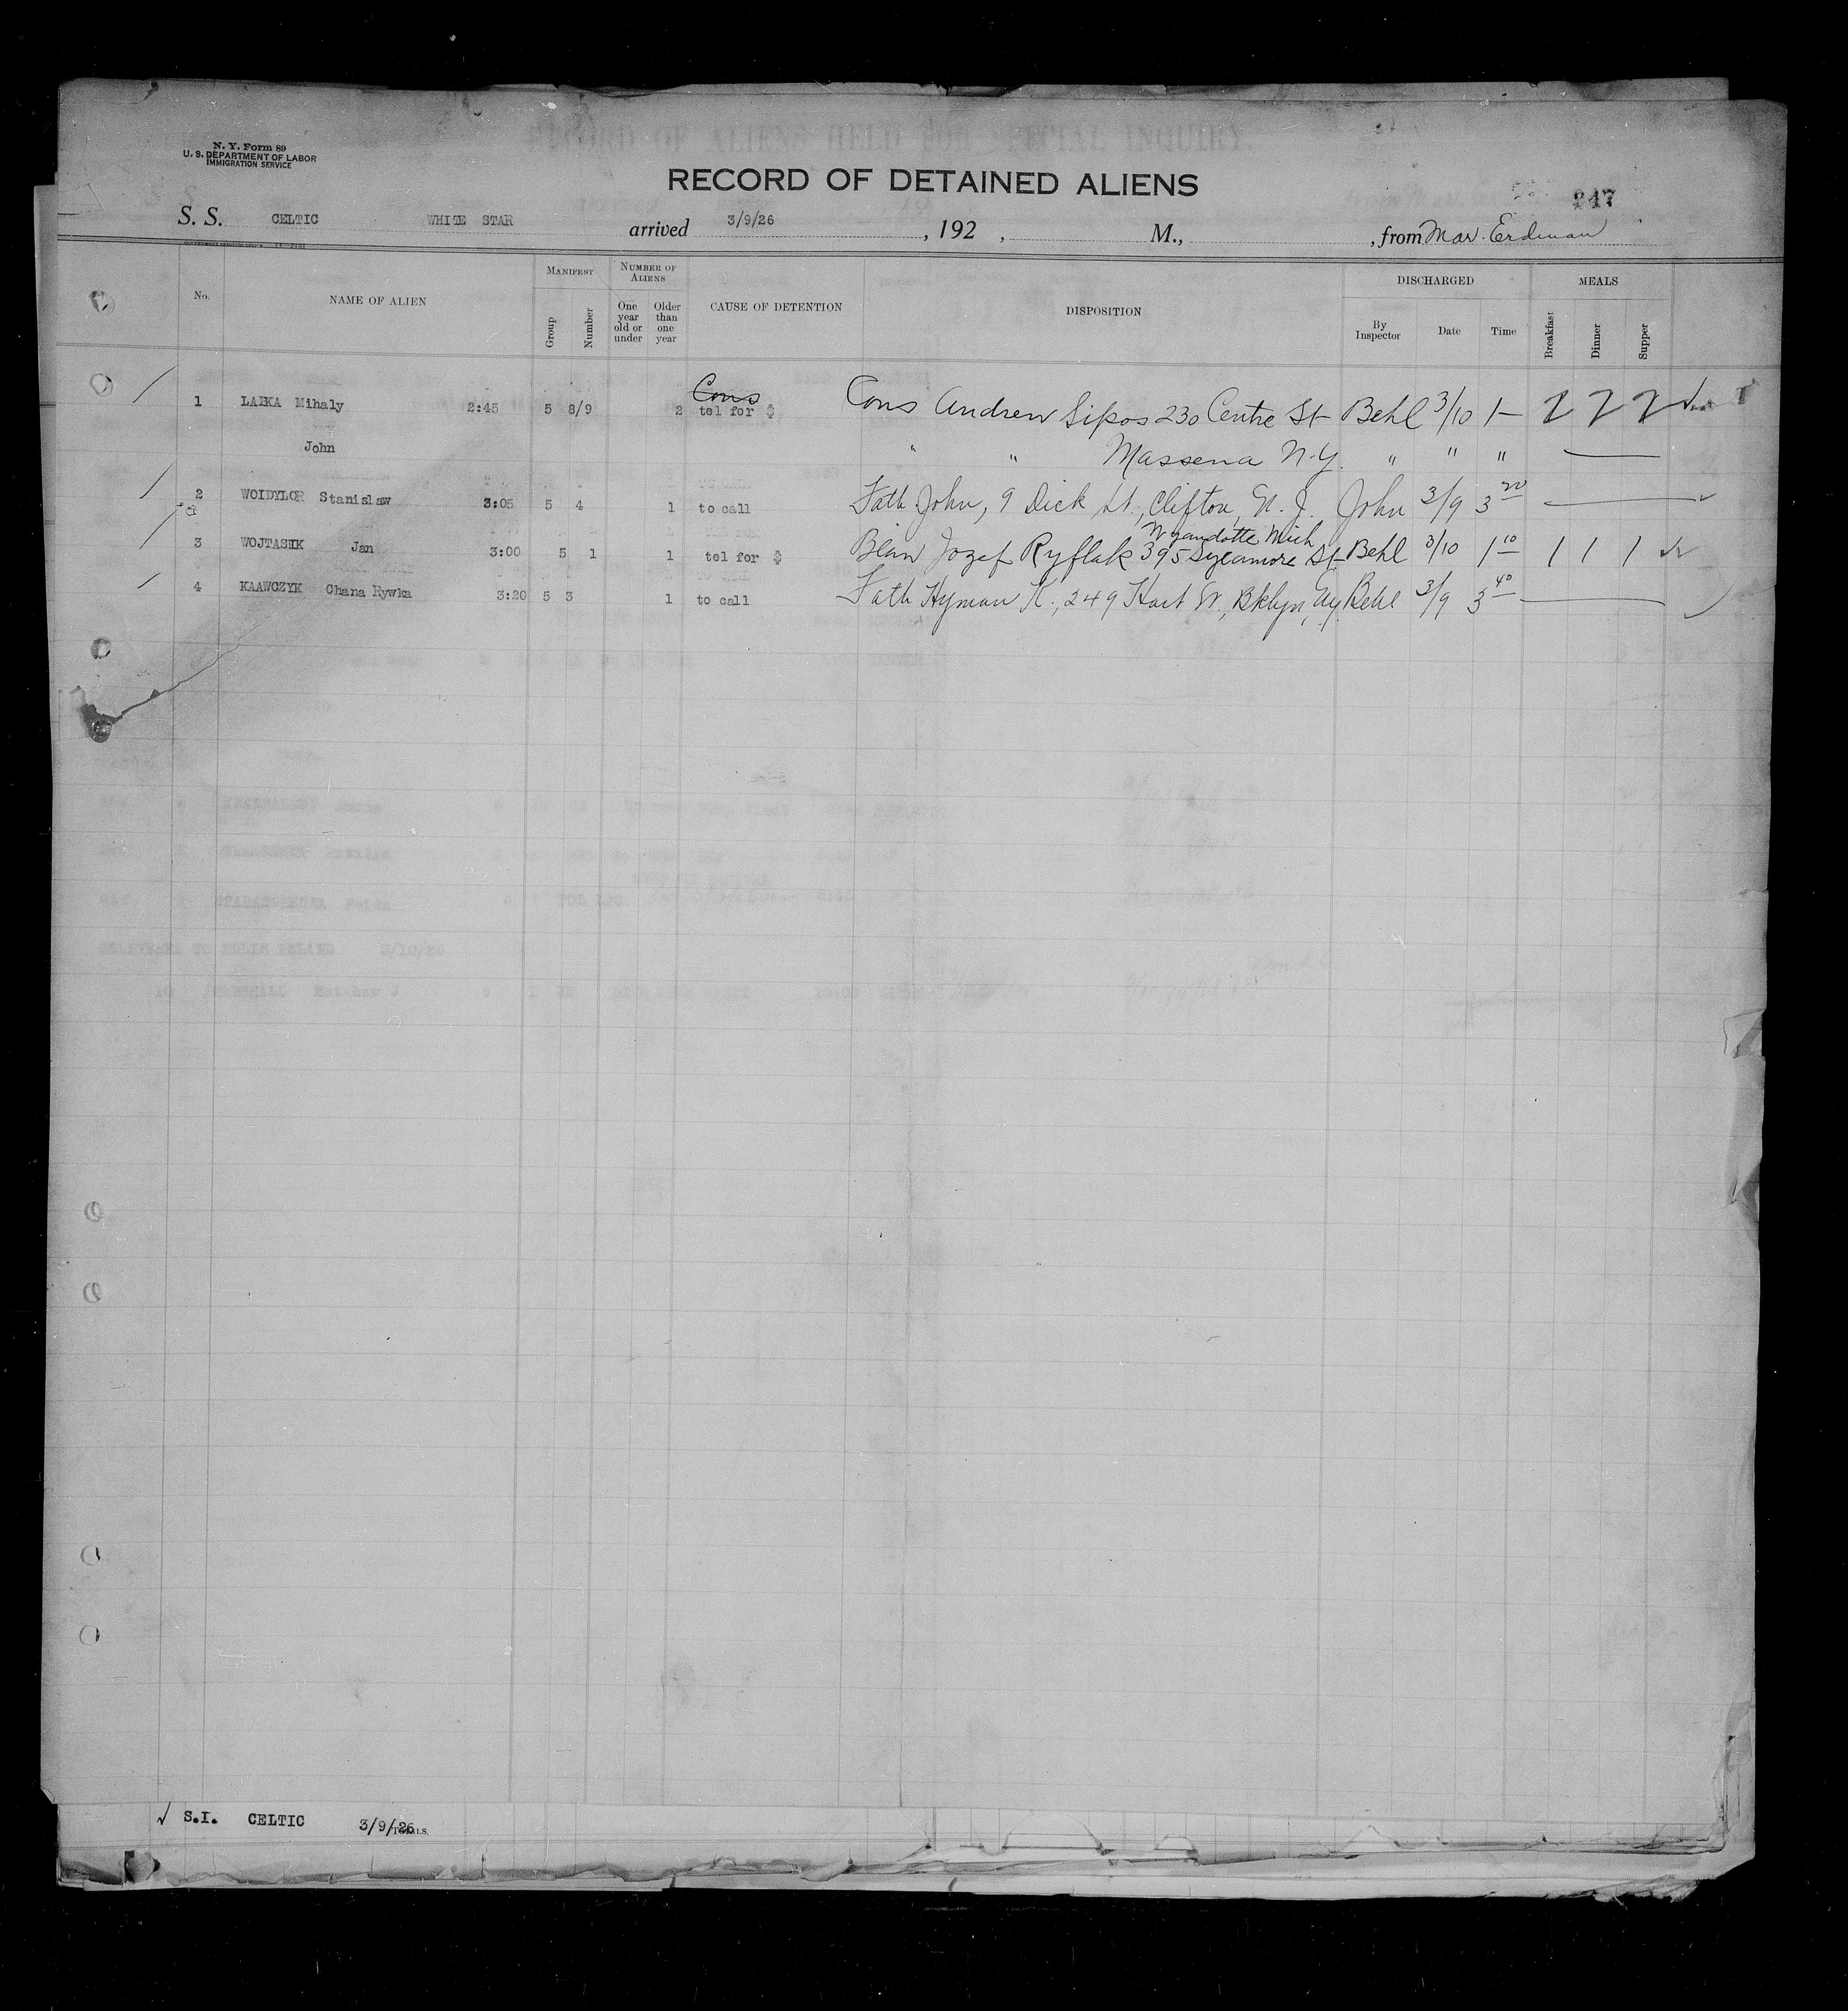 N. Y. Form 89
U. S. DEPARTMENT OF LABOR
IMMIGRATION SERVICE
RECORD OF ALIENS HELD FOR SPECIAL INQUIRY.
RECORD OF DETAINED ALIENS
247
S. S. CELTIC WHITE STAR arrived 3/9/26, 192 , M., , from Mar. Erdman
No. NAME OF ALIEN MANIFEST Group Number NUMBER OF ALIENS One year old or under Older than one year CAUSE OF DETENTION DISPOSITION DISCHARGED By Inspector Date Time MEALS Breakfast Dinner Supper
Cons
1 LABKA Mihaly 2:45 5 8/9 2 tel for $ Cons Andrew Sipos 230 Centre St Behl 3/10 1— 2 2 2
John " " Massena N.Y. " " "
2 WOIDYLOR Stanislaw 3:05 5 4 1 to call Fath John, 9 Dick St., Clifton, N. J. John 3/9 3 20
Wyandotte Mich
3 WOJTASIK Jan 3:00 5 1 1 tel for $ Jozef Ryflak 395 Sycamore St Behl 3/10 1 10 1 1 1
4 KAAWCZYK Chana Rywka 3:20 5 3 1 to call Fath Hyman K., 249 Hart St., Bklyn, Ny. Behl 3/9 3 40
DELIVERED TO ELLIS ISLAND 3/10/26
√ S.I. CELTIC 3/9/26
TOTALS.